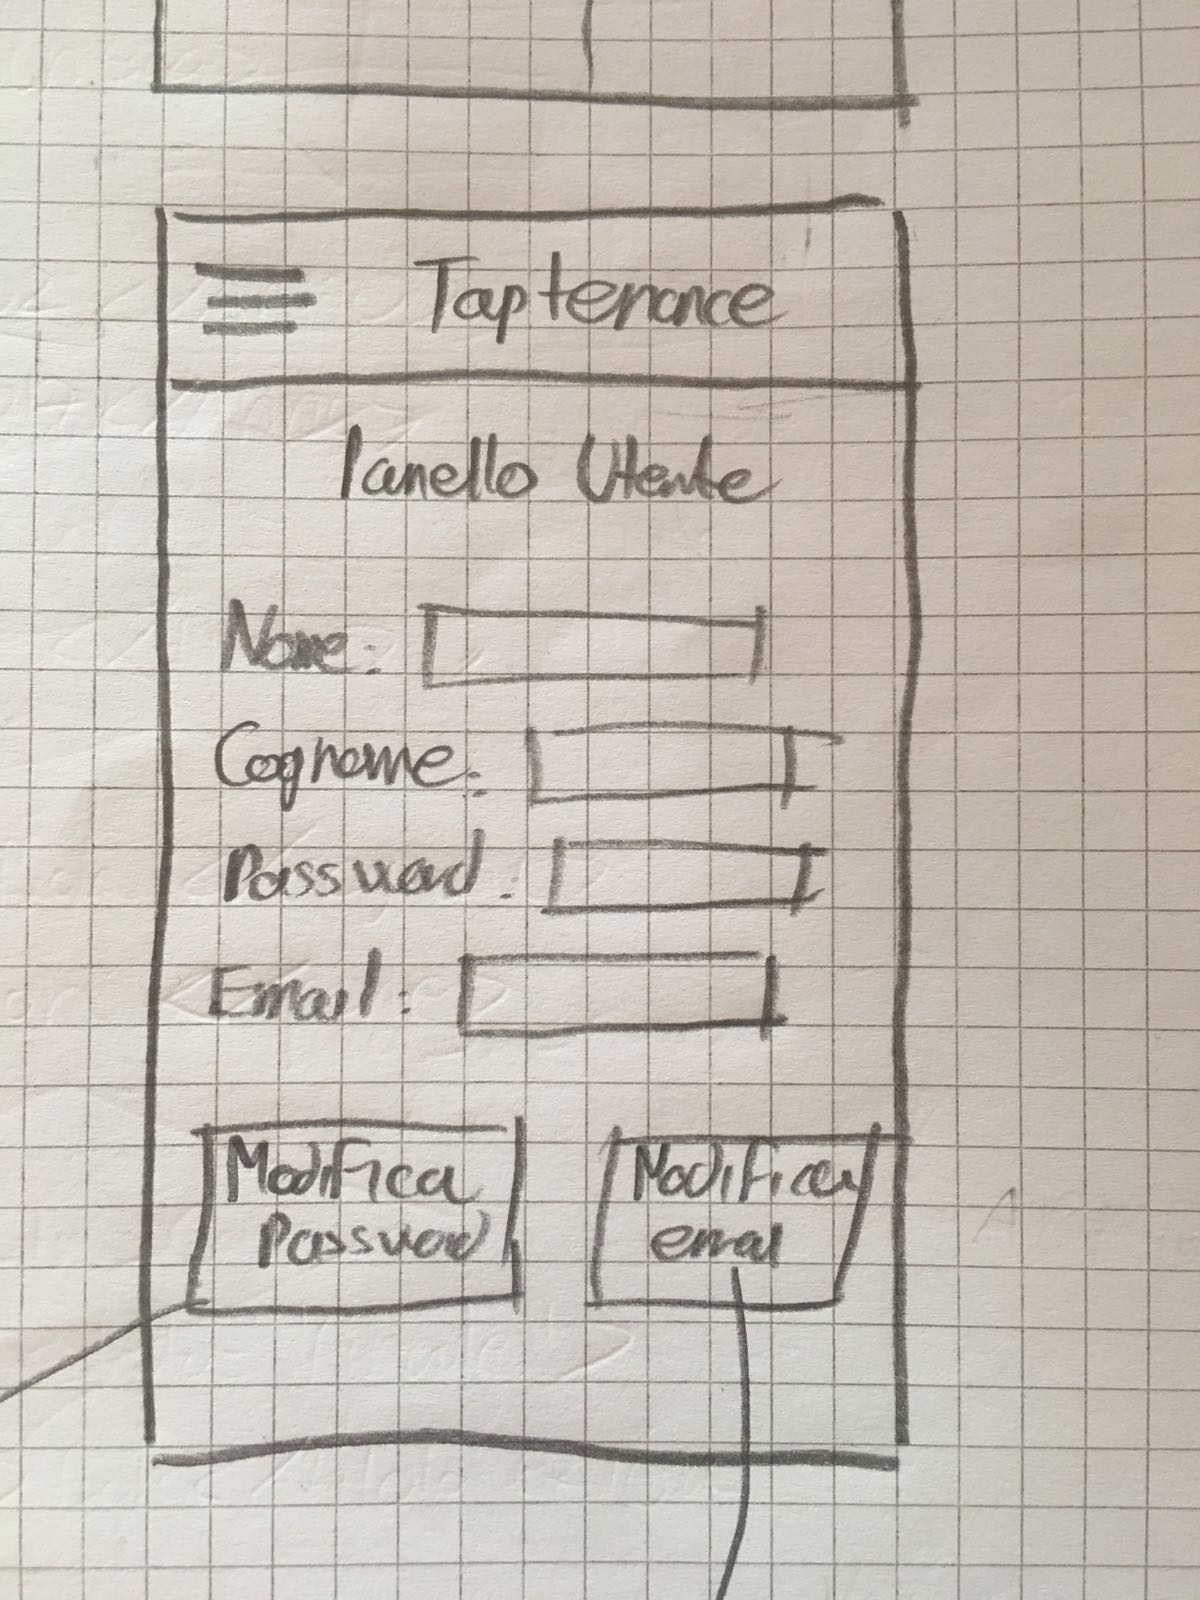 Taptenance
Panello Utente
Nome:
Cognome:
Password:
Email:
Modifica
Password
Modifica
email